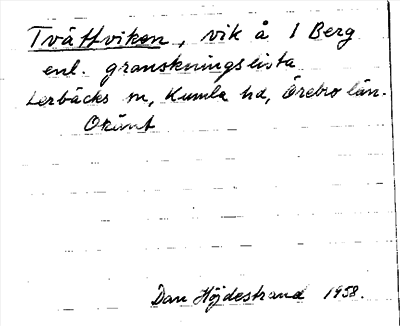 Tvättviken, vik å 1 Berg
enl. granskningslista
Lerbäcks sn, Kumla hd, Örebro län.
Okänt
Dan Höjdestrand 1958.